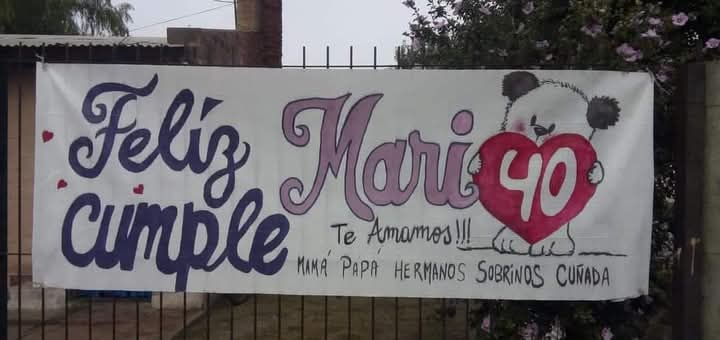 Felíz
cumple
Mari
40
Te Ámamos!!!
MAMÁ PAPA HERMANOS SOBRINOS CUÑADA